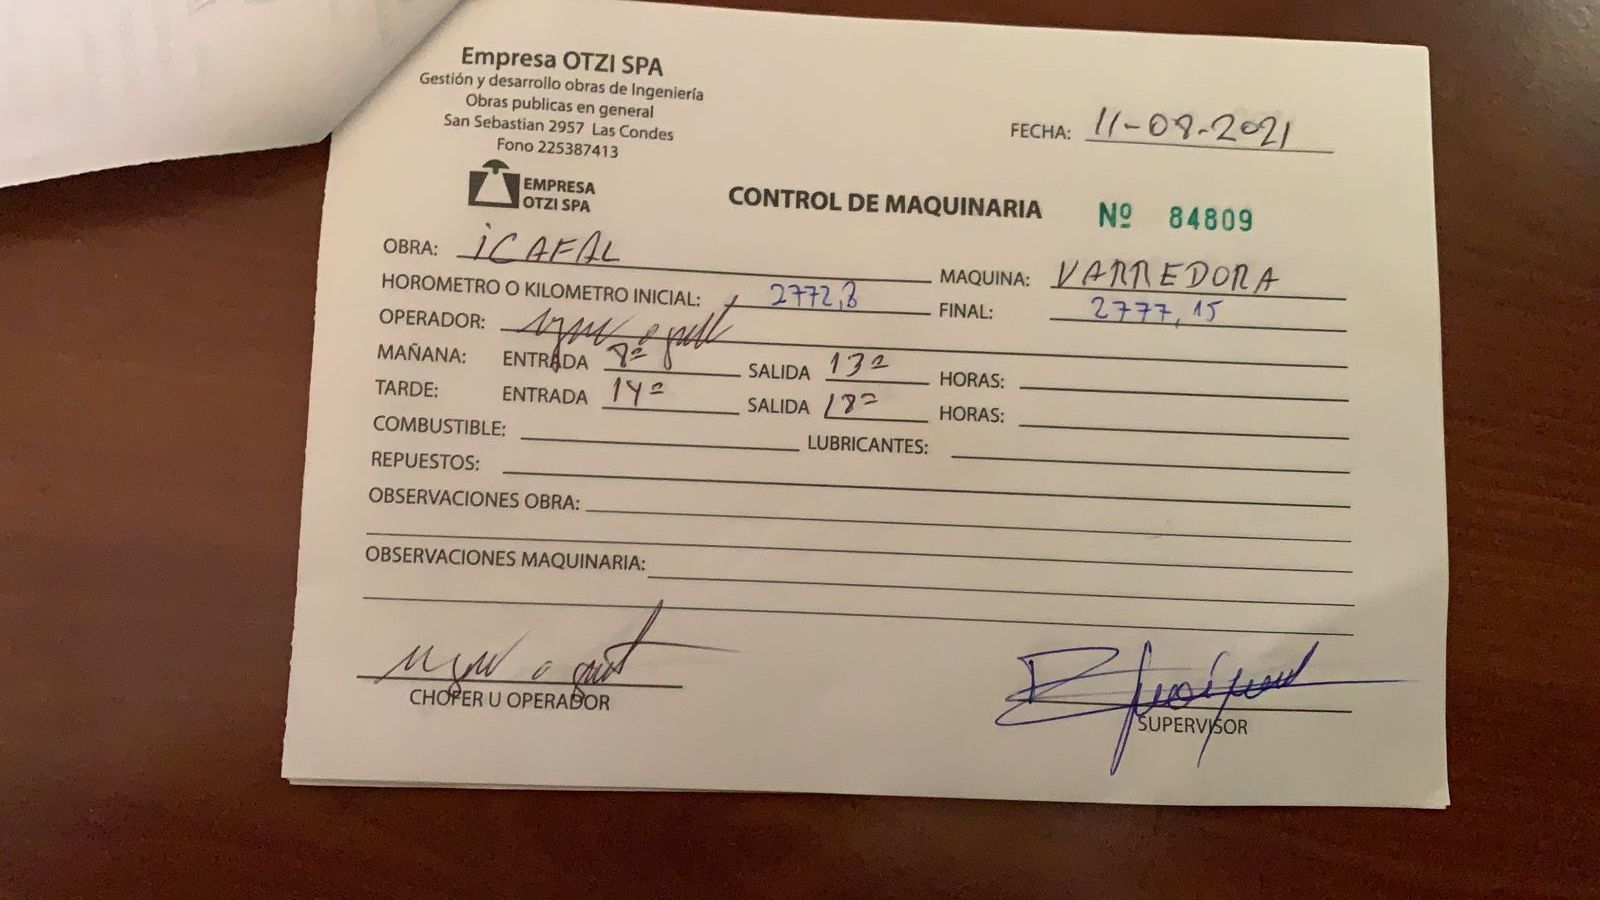 Empresa OTZI SPA
Gestión y desarrollo obras de Ingeniería
Obras publicas en general
San Sebastian 2957 Las Condes
Fono 225387413
EMPRESA
OTZI SPA
FECHA: 11-08-2021
CONTROL DE MAQUINARIA Nº 84809
OBRA: iCAFAL MAQUINA: VARREDORA
HOROMETRO O KILOMETRO INICIAL: 2772,3 FINAL: 2777,15
OPERADOR:
MAÑANA: ENTRADA 8º SALIDA 13º HORAS:
TARDE: ENTRADA 14º SALIDA 18º HORAS:
COMBUSTIBLE: LUBRICANTES:
REPUESTOS:
OBSERVACIONES OBRA:
OBSERVACIONES MAQUINARIA:
CHOFER U OPERADOR
SUPERVISOR